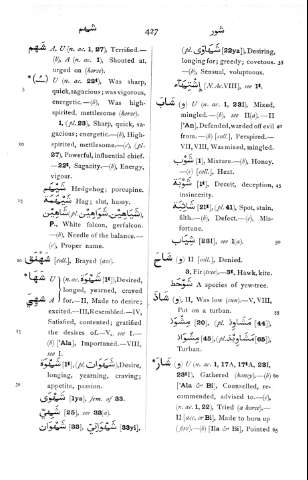 شهم 427 شور
شَهَمَ A, U (n. ac. 1, 27), Terrified.—
(b), A (n. ac. 1), Shouted at,
urged on (horse).
U (n. ac. 22ᵗ), Was sharp,
quick, sagacious; was vigorous,
energetic.—(b), Was high-
spirited, mettlesome (horse).
1, (pl. 23), Sharp, quick, sa-
gacious; energetic.—(b), High-
spirited, mettlesome.—(c) (pl.
27), Powerful, influential chief.
—22ᵗ, Sagacity.—(b), Energy,
vigour.
شَيْهَم Hedgehog; porcupine.
Hag; slut, hussy.
شَاهِين (pl. شَوَاهِين, شَيَاهِين),
P. White falcon, gerfalcon.
—(b), Needle of the balance.—
(c), Proper name.
شَهْنَقَ [coll.], Brayed (ass).
شَهَا U (n. ac. شَهْوَة [1ᵗ]), Desired,
longed, yearned, craved
for.—II, Made to desire;
excited.—III, Resembled.—IV,
Satisfied, contented; gratified
the desires of.—V, see I.—
(b) ['Ala], Importuned.—VIII,
see I.
شَهْوَة [1ᵗ], (pl. شَهَوَات), Desire,
longing, yearning, craving;
appetite, passion.
شَهْوَى [1ya], fem. of 33.
شَهِيّ [25], see 33(a).
شَهْوَان [33], شَهْوَانِيّ [33yi],
(pl. شَهَاوَى [22ya]), Desiring,
longing for; greedy; covetous.
—(b), Sensual, voluptuous.
إِشْتِهَآء [N. Ac. VIII], see 1ᵗ.
شَابَ (و) U (n. ac. 1, 23I), Mixed,
mingled.—(b), see II(a).—II
['An], Defended, warded off evil
from.—(b) [coll.], Perspired.—
VII, VIII, Was mixed, mingled.
شَوْب [1], Mixture.—(b), Honey.
—(c) [coll.], Heat.
شَوْبَة [1ᵗ], Deceit, deception,
insincerity.
شَائِبَة [21ᵗ], (pl. 41), Spot, stain,
filth.—(b), Defect.—(c), Mis-
fortune.
شِيَاب [23I], see 1(a).
شَاحَ (و) II [coll.], Denied.
3, Fir (tree).—3ᵗ, Hawk, kite.
شَوْحَط A species of yew-tree.
(و) II, Was low (sun).—V, VIII,
Put on a turban.
مِشْوَذ [20], (pl. مَشَاوِذ [44]),
مِشْوَاذ [45], (pl. مَشَاوِيذ [45]),
Turban.
شَارَ (و) U (n. ac. 1, 17A, 17ᵗA, 23I,
23ᵗI) Gathered (honey).—(b)
['Ala & Bi], Counselled, re-
commended, advised to.—(c),
(n. ac. 1, 22), Tried (a horse).—
II [acc. or Bi], Made to burn up
(fire).—(b) [Ila & Bi], Pointed